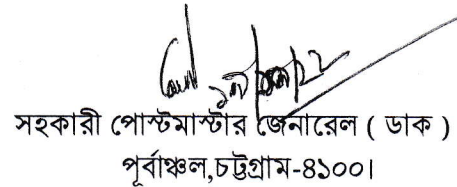 সহকারী পোস্টমাস্টার জেনারেল ( ডাক )
পূর্বাঞ্চল,চট্টগ্রাম-৪১০০।